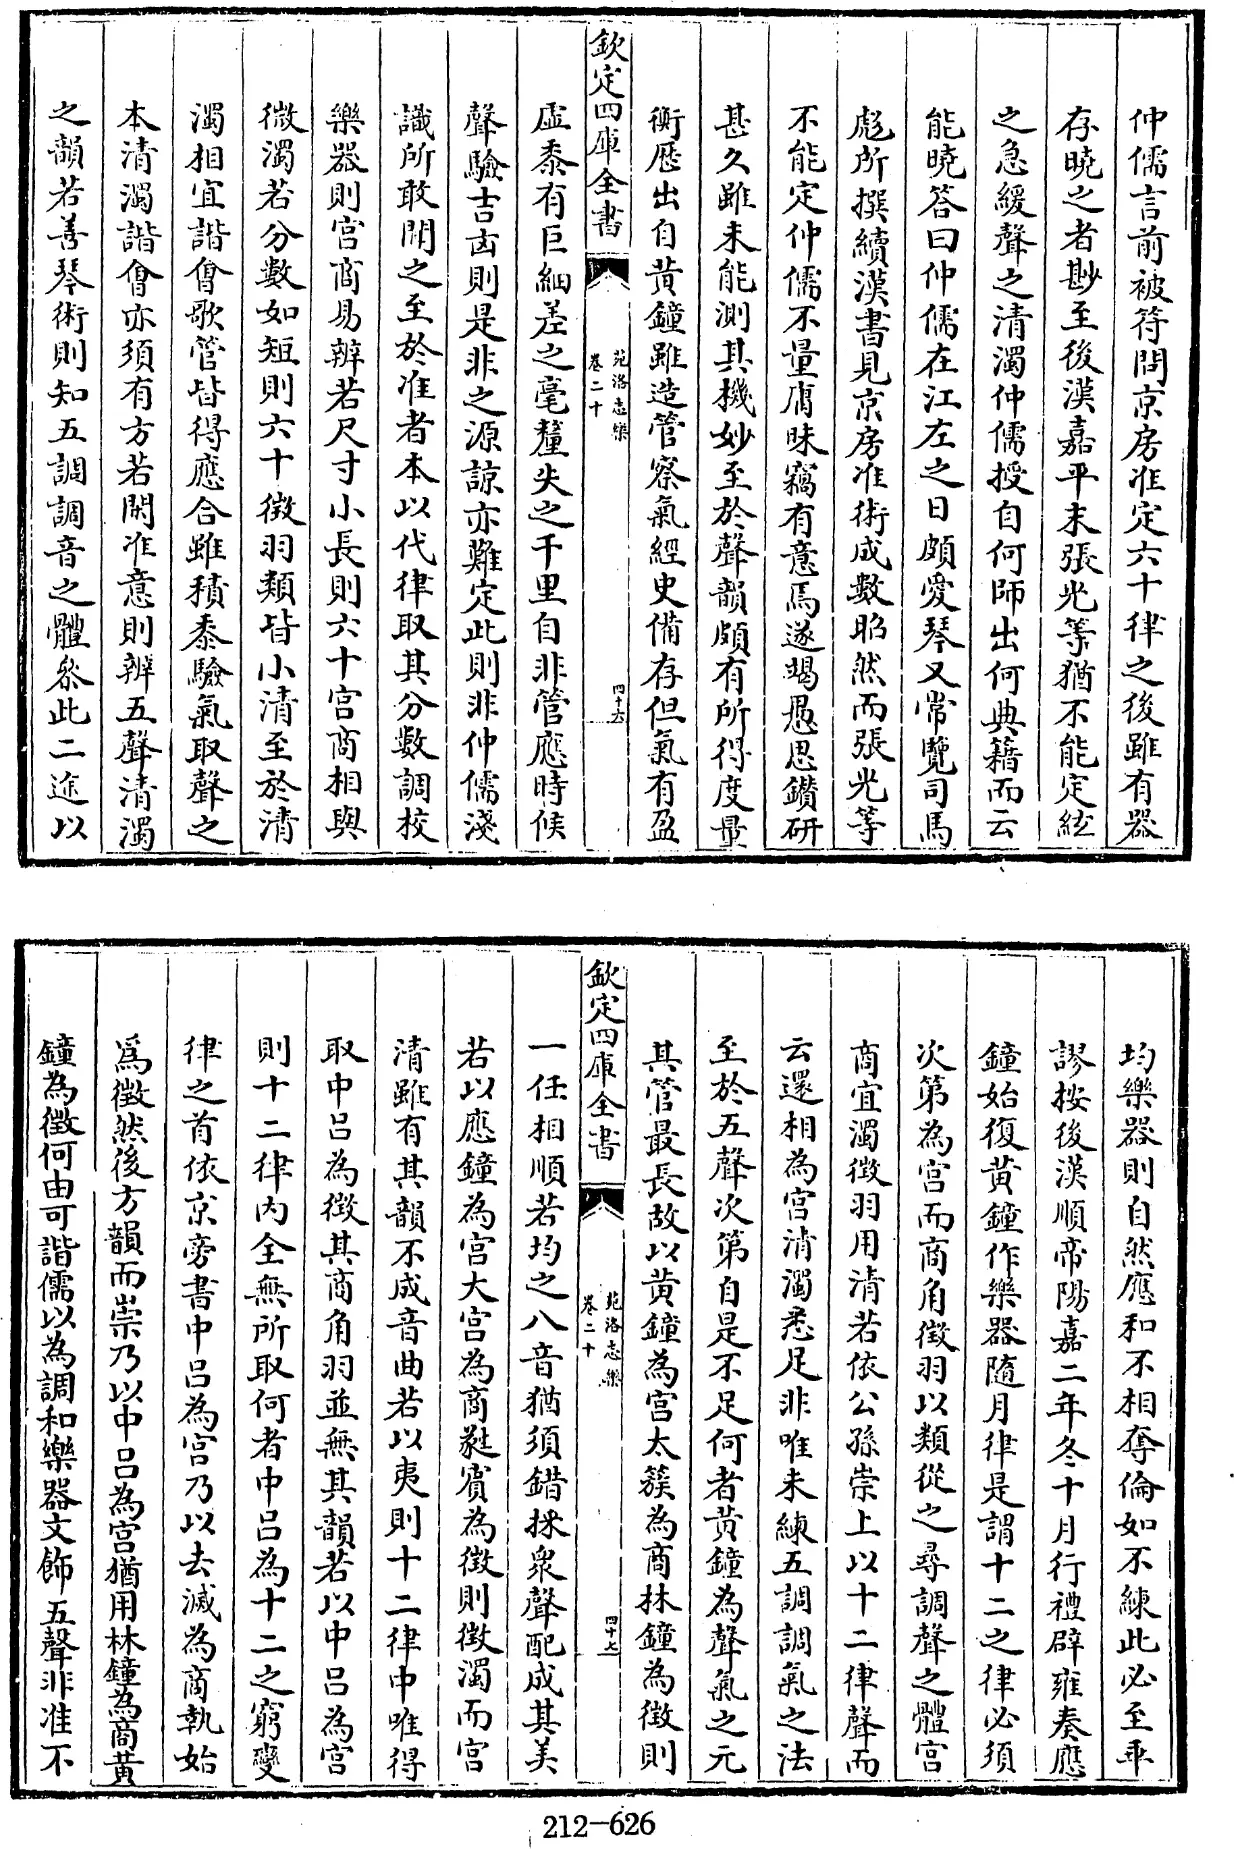 仲儒言前被符問京房准定六十律之後雖有器
存曉之者尠至後漢嘉平末張光等猶不能定絃
之急緩聲之清濁仲儒授自何師出何典籍而云
能曉答曰仲儒在江左之日頗愛琴又常覽司馬
彪所撰續漢書見京房准術成數昭然而張光等
不能定仲儒不量庸昧竊有意焉遂竭愚思鑽研
甚久雖未能測其機妙至於聲韻頗有所得度量
衡歷出自黃鐘雖造管察氣經史備存但氣有盈
欽定四庫全書
苑洛志樂
卷二十
四十六
虛黍有巨細差之毫釐失之千里自非管應時候
聲驗吉凶則是非之源諒亦難定此則非仲儒淺
識所敢聞之至於准者本以代律取其分數調校
樂器則宮商易辨若尺寸小長則六十宮商相與
微濁若分數如短則六十徵羽類皆小清至於清
濁相宜諧會歌管皆得應合雖積黍驗氣取聲之
本清濁諧會亦須有方若閑准意則辨五聲清濁
之韻若善琴術則知五調調音之體叅此二途以
均樂器則自然應和不相奪倫如不練此必至乖
謬按後漢順帝陽嘉二年冬十月行禮辟雍奏應
鐘始復黃鐘作樂器隨月律是謂十二之律必須
次第為宮而商角徵羽以類從之尋調聲之體宮
商宜濁徵羽用清若依公孫崇上以十二律聲而
云還相為宮清濁悉足非唯未練五調調氣之法
至於五聲次第自是不足何者黃鐘為聲氣之元
其管最長故以黃鐘為宮太簇為商林鐘為徵則
欽定四庫全書
苑洛志樂
卷二十
四十七
一任相順若均之八音猶須錯採衆聲配成其美
若以應鐘為宮大宮為商蕤賓為徵則徵濁而宮
清雖有其韻不成音曲若以夷則十二律中唯得
取中呂為徵其商角羽並無其韻若以中呂為宮
則十二律內全無所取何者中呂為十二之窮變
律之首依京旁書中呂為宮乃以去滅為商執始
爲徵然後方韻而崇乃以中呂為宮猶用林鐘為商黃
鐘為徵何由可諧儒以為調和樂器文飾五聲非准不
212-626